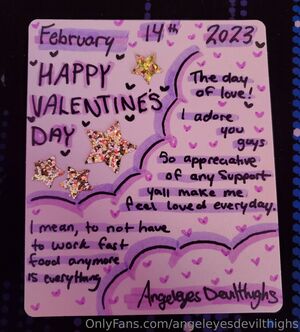 February 14th 2023
HAPPY
VALENTINE'S
DAY
The day
of love!
I adore
you
guys
So appreciative
of any support
yall make me
feel loved everyday.
I mean, to not have
to work fast
food anymore
is everything
Angeleyes Devilthighs
OnlyFans.com/angeleyesdevilthighs